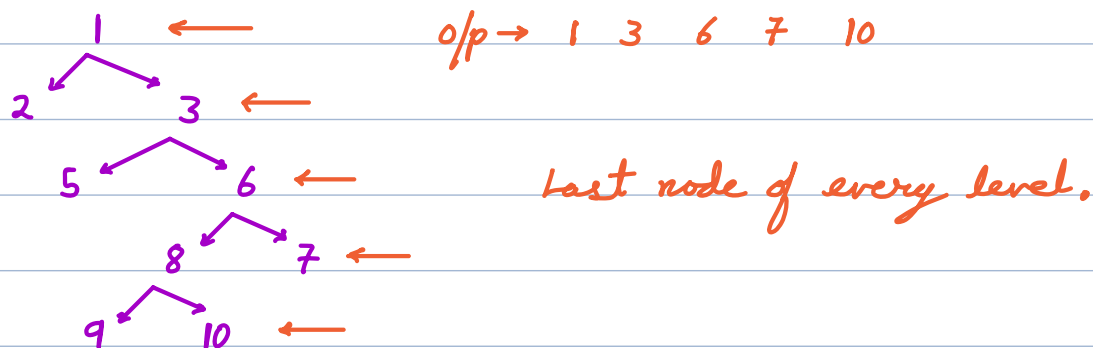 1 o/p → 1 3 6 7 10
2 3
5 6 Last node of every level.
8 7
9 10